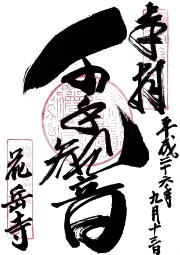 奉拝
平成二六年
九月十三日
千手観音
花岳寺